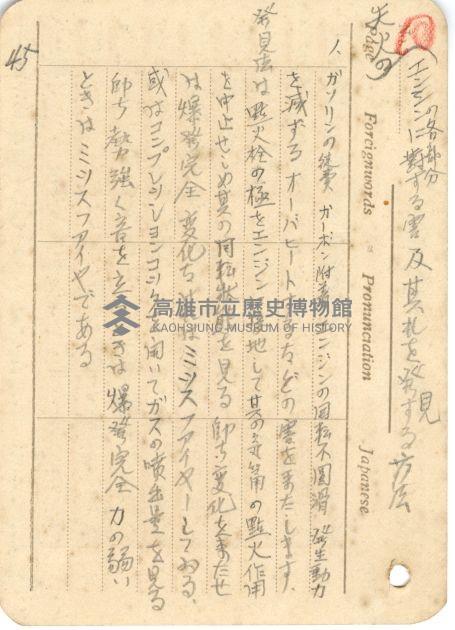 失火の(エンジンの各部分に對する害及其れを発見する方法
1、ガソリンの徒費 カーボン附着 エンジンの回転不圓滑 発生動力
を減ずる オーバヒートするなどの害をまたします、
発見法は點火栓の極をエンジンに接地して其の気筒の點火作用
を中止せしめ其の回転状態を見る 即ち変化をきたせ
ば爆発完全 変化なければミツスフアイヤーしてゐる、
或はコンプレツションコツクを開いてガスの噴出量を見る
即ち勢強く音を立るときは爆発完全 力の弱い
ときはミツスフアイヤである
45
Page Foreignwords Pronunciation Japanese
高雄市立歷史博物館
KAOHSIUNG MUSEUM OF HISTORY